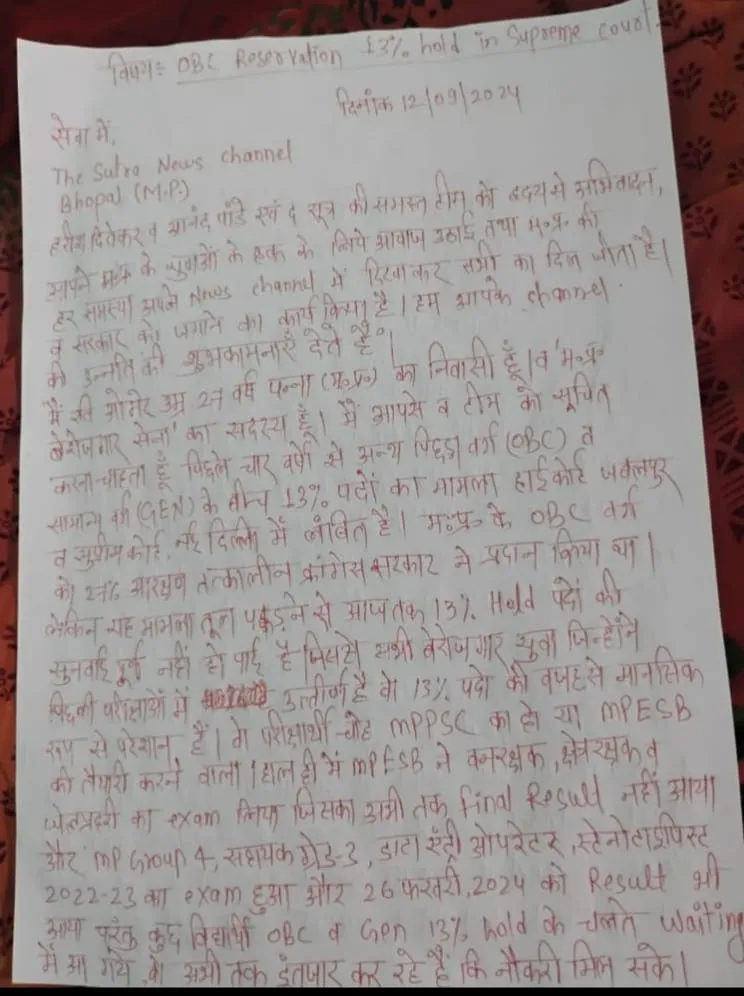 विषय:- OBC Reservation 13% hold in Supreme court.
दिनांक 12/09/2024
सेवा में,
The Sutra News Channel
Bhopal (M.P.)
हरीश दिवेकर व आनंद पांडे एवं द सूत्र की समस्त टीम को हृदय से अभिवादन,
आपने म॰प्र॰ के युवाओं के हक के लिये आवाज उठाई तथा म॰प्र॰ की
हर समस्या अपने News channel में दिखाकर सभी का दिल जीता है।
व सरकार को जगाने का कार्य किया है। हम आपके channel
की उन्नति की शुभकामनाएँ देते हैं।
मैं रवि ओमरे उम्र 27 वर्ष पन्ना (म॰प्र॰) का निवासी हूँ। व 'म॰प्र॰
बेरोजगार सेना' का सदस्य हूँ। मैं आपसे व टीम को सूचित
करना चाहता हूँ पिछले चार वर्षों से अन्य पिछड़ा वर्ग (OBC) व
सामान्य वर्ग (GEN) के बीच 13% पदों का मामला हाईकोर्ट जबलपुर
व सुप्रीम कोर्ट नई दिल्ली में लंबित है। म॰प्र॰ के OBC वर्ग
को 27% आरक्षण तत्कालीन कांग्रेस सरकार ने प्रदान किया था।
लेकिन यह मामला तूल पकड़ने से आज तक 13% Hold पदों की
सुनवाई पूर्ण नहीं हो पाई है जिससे सभी बेरोजगार युवा जिन्होंने
पिछली परीक्षाओं में उत्तीर्ण है वो 13% पदों की वजह से मानसिक
रूप से परेशान हैं। ये परीक्षार्थी चाहे MPPSC का हो या MPESB
की तैयारी करने वाला। हाल ही में MPESB ने वनरक्षक, क्षेत्ररक्षक व
जेलप्रहरी का exam लिया जिसका अभी तक final Result नहीं आया
और MP Group 4, सहायक ग्रेड-3, डाटा एंट्री ऑपरेटर, स्टेनोटाइपिस्ट
2022-23 का exam हुआ और 26 फरवरी, 2024 को Result भी
आया परंतु कुछ विद्यार्थी OBC व Gen 13% hold के चलते waiting
में आ गये, वो अभी तक इंतजार कर रहे हैं कि नौकरी मिल सके।